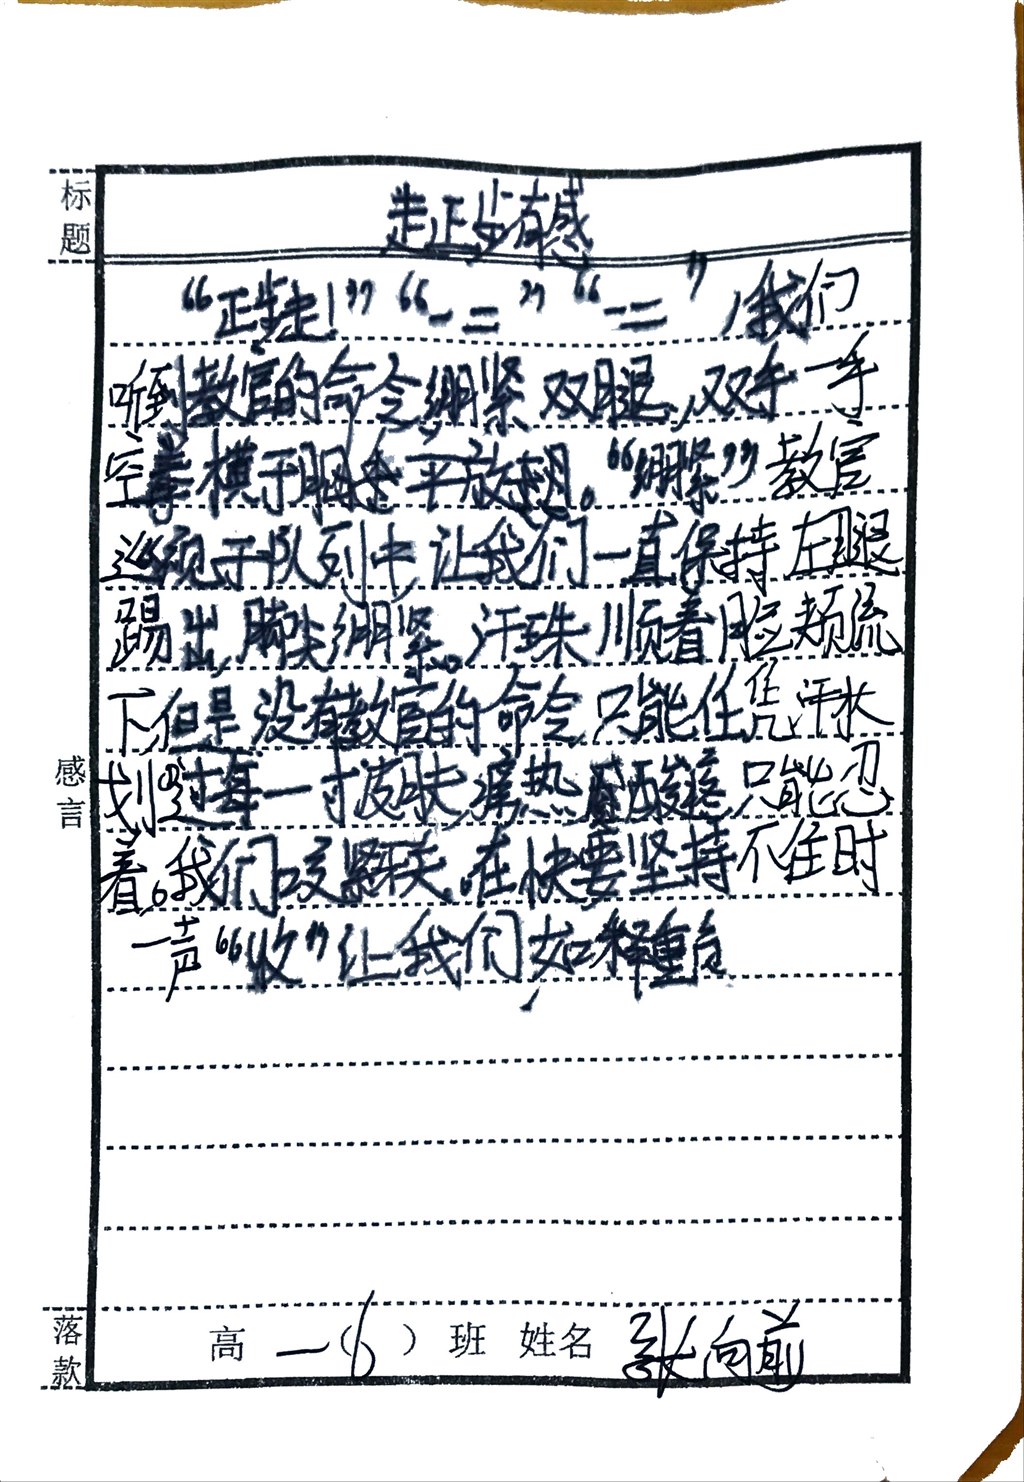 标题
走正步有感
“正步走！”“一二”“一二”，我们
听到教官的命令绷紧双腿，双手一手
空拳横于胸 一 平放 。“绷紧”教官
巡视于队列中，让我们一直保持左腿
踢出，脚尖绷紧。汗珠顺着脸颊流
下，但是没有教官的命令，只能任凭汗水
划过每一寸皮肤，痛热 酸 ，只能忍
着。我们咬紧牙关。在快要坚持不住时
一声“收”让我们如释重负
感言
落款
高一（6）班 姓名 张向前